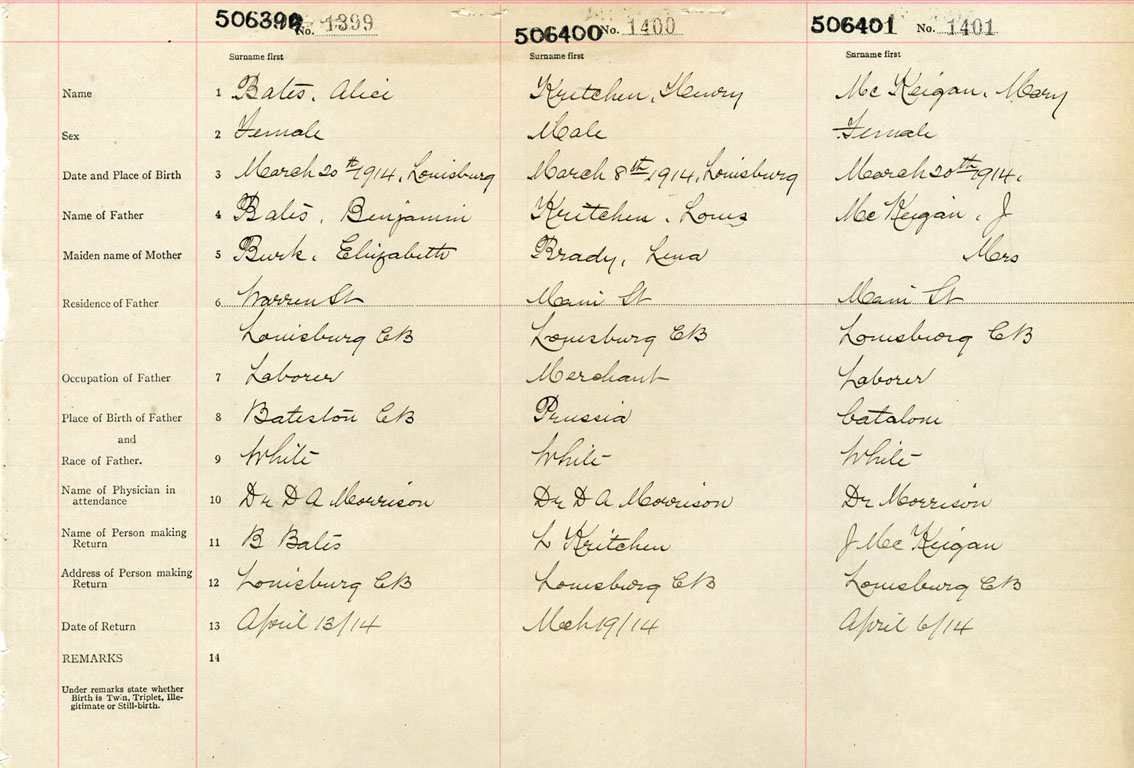 506399 No. 1399 506400 No. 1400 506401 No. 1401
Surname first Surname first Surname first
Name 1 Bates, Alice Kritchen, Henry Mc Keigan, Mary
Sex 2 Female Male Female
Date and Place of Birth 3 March 20th 1914, Louisburg March 8th, 1914, Louisburg March 20th 1914,
Name of Father 4 Bates, Benjamin Kritchen, Louis Mc Keigan, J
Maiden name of Mother 5 Burk, Elizabeth Brady, Lena Mrs
Residence of Father 6 Warren St Main St Main St
Louisburg CB Louisburg CB Louisburg CB
Occupation of Father 7 Laborer Merchant Laborer
Place of Birth of Father 8 Bateston CB Prussia Catalone
and
Race of Father. 9 White White White
Name of Physician in
attendance 10 Dr D A Morrison Dr D A Morrison Dr Morrison
Name of Person making
Return 11 B Bates L Kritchen J Mc Keigan
Address of Person making
Return 12 Louisburg CB Louisburg CB Louisburg CB
Date of Return 13 April 13/14 Mch 19/14 April 6/14
REMARKS 14
Under remarks state whether
Birth is Twin, Triplet, Ille-
gitimate or Still-birth.